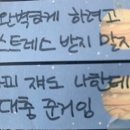 완벽하게 하려고
스트레스 받지 말자
피 쟤도 나한테
대충 준거임